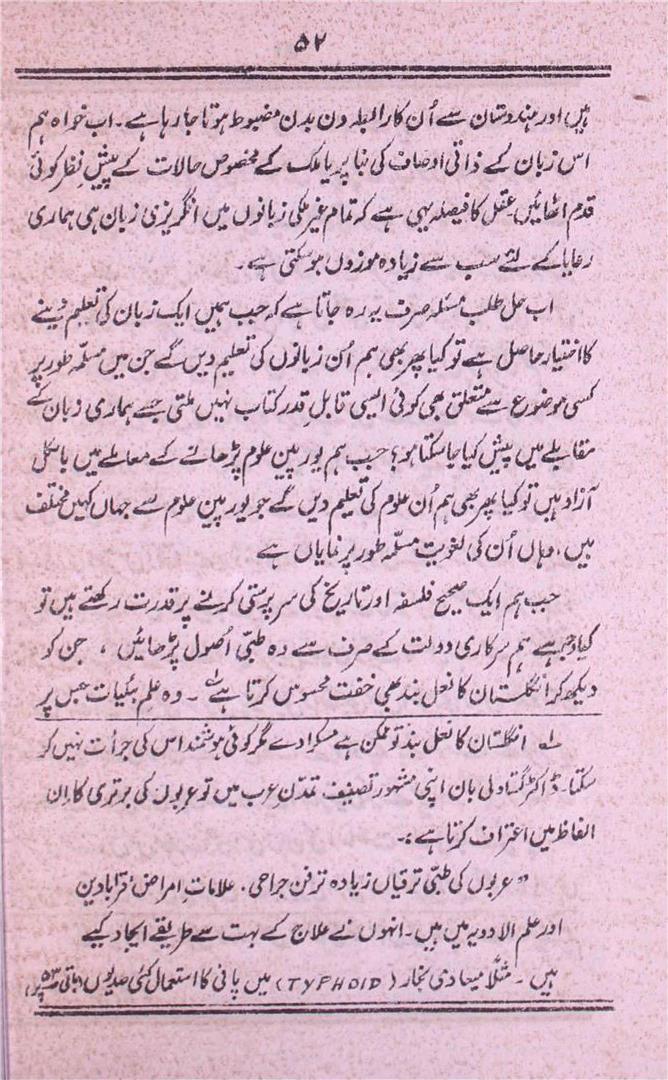 ۵۲
ہیں اور ہندوستان سے اُن کا رابطہ دن بدن مضبوط ہوتا جا رہا ہے۔ اب خواہ ہم
اس زبان کے ذاتی اوصاف کی بنا پر یا ملک کے مخصوص حالات کے پیش نظر کوئی
قدم اٹھائیں۔ عقل کا فیصلہ یہی ہے کہ تمام غیر ملکی زبانوں میں انگریزی زبان ہی ہماری
رعایا کے لئے سب سے زیادہ موزوں ہو سکتی ہے۔
اب حل طلب مسئلہ صرف یہ رہ جاتا ہے کہ جب ہمیں ایک زبان کی تعلیم دینے
کا اختیار حاصل ہے تو کیا پھر بھی ہم اُن زبانوں کی تعلیم دیں گے جن میں مسلّمہ طور پر
کسی موضوع سے متعلق بھی کوئی ایسی قابلِ قدر کتاب نہیں ملتی جسے ہماری زبان کے
مقابلے میں پیش کیا جا سکتا ہو؟ جب ہم یورپین علوم پڑھانے کے معاملے میں بالکل
آزاد ہیں تو کیا پھر بھی ہم اُن علوم کی تعلیم دیں گے جو یورپین علوم سے جہاں کہیں مختلف
ہیں، وہاں اُن کی لغویت مسلّمہ طور پر نمایاں ہے
جب ہم ایک صحیح فلسفہ اور تاریخ کی سرپرستی کرنے پر قدرت رکھتے ہیں تو
کیا وجہ ہے ہم سرکاری دولت کے صرف سے وہ طبّی اُصول پڑھائیں، جن کو
دیکھ کر انگلستان کا نعل بند بھی خفت محسوس کرتا ہے ؎۱۔ وہ علم ہئیات جس پر
؎۱ انگلستان کا نعل بند تو ممکن ہے مسکرا دے مگر کوئی ہوشمند اس کی جرأت نہیں کر
سکتا۔ ڈاکٹر گستاولی بان اپنی مشہور تصنیف تمدنِ عرب میں تو عربوں کی برتری کا اِن
الفاظ میں اعتراف کرتا ہے:۔
"عربوں کی طبّی ترقیاں زیادہ تر فن جراحی، علاماتِ امراض، قرابادین
اور علم الادویہ میں ہیں۔ انہوں نے علاج کے بہت سے طریقے ایجاد کیے
ہیں۔ مثلاً میعادی بخار (TYPHOID) میں پانی کا استعمال کئی صدیوں (باقی صفحہ ۵۳ پر)